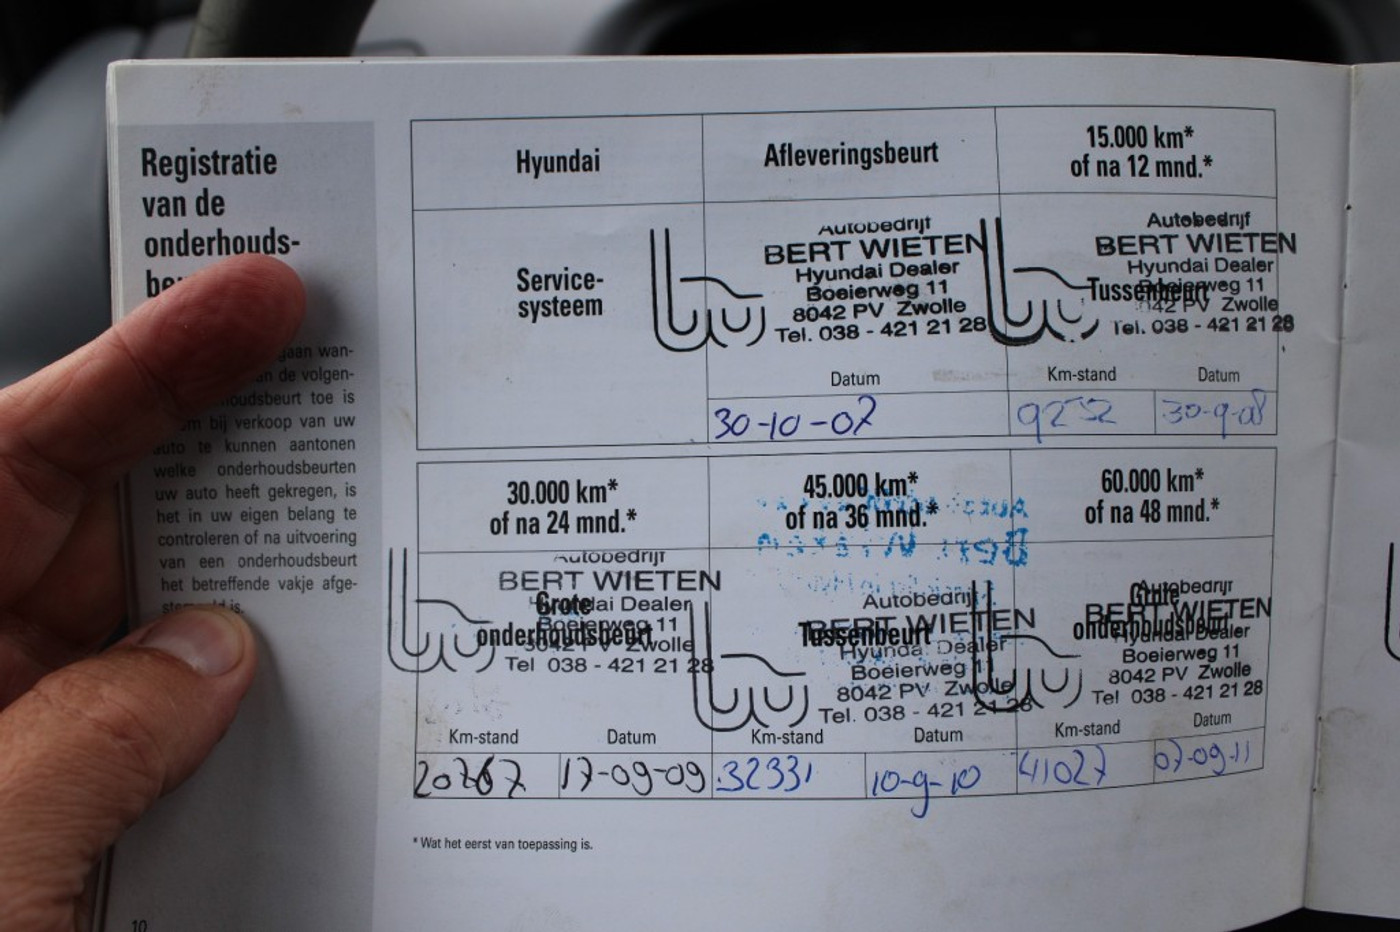 Registratie
van de
onderhouds-
wan-
de volgen-
toe is
bij verkoop van uw
auto te kunnen aantonen
welke onderhoudsbeurten
uw auto heeft gekregen, is
het in uw eigen belang te
controleren of na uitvoering
van een onderhoudsbeurt
het betreffende vakje afge-
is.
10
Hyundai
Afleveringsbeurt
15.000 km*
of na 12 mnd.*
Service-
systeem
Autobedrijf
BERT WIETEN
Hyundai Dealer
Boeierweg 11
8042 PV Zwolle
Tel. 038 - 421 21 28
Datum
30-10-07
Autobedrijf
BERT WIETEN
Hyundai Dealer
Boeierweg 11
Tussenbeurt
PV Zwolle
Tel. 038 - 421 21 28
Km-stand Datum
9252 30-9-08
30.000 km*
of na 24 mnd.*
45.000 km*
of na 36 mnd.*
60.000 km*
of na 48 mnd.*
Autobedrijf
BERT WIETEN
Hyundai Dealer
Grote
Boeierweg 11
onderhoudsbeurt
8042 PV Zwolle
Tel 038 - 421 21 28
Km-stand Datum
20767 17-09-09
Autobedrijf
BERT WIETEN
Tussenbeurt
Hyundai Dealer
Boeierweg 11
8042 PV Zwolle
Tel. 038 - 421 21 28
Km-stand Datum
32331 10-9-10
Autobedrijf
Grote
BERT WIETEN
onderhoudsbeurt
Hyundai Dealer
Boeierweg 11
8042 PV Zwolle
Tel 038 - 421 21 28
Km-stand Datum
41027 07-09-11
* Wat het eerst van toepassing is.